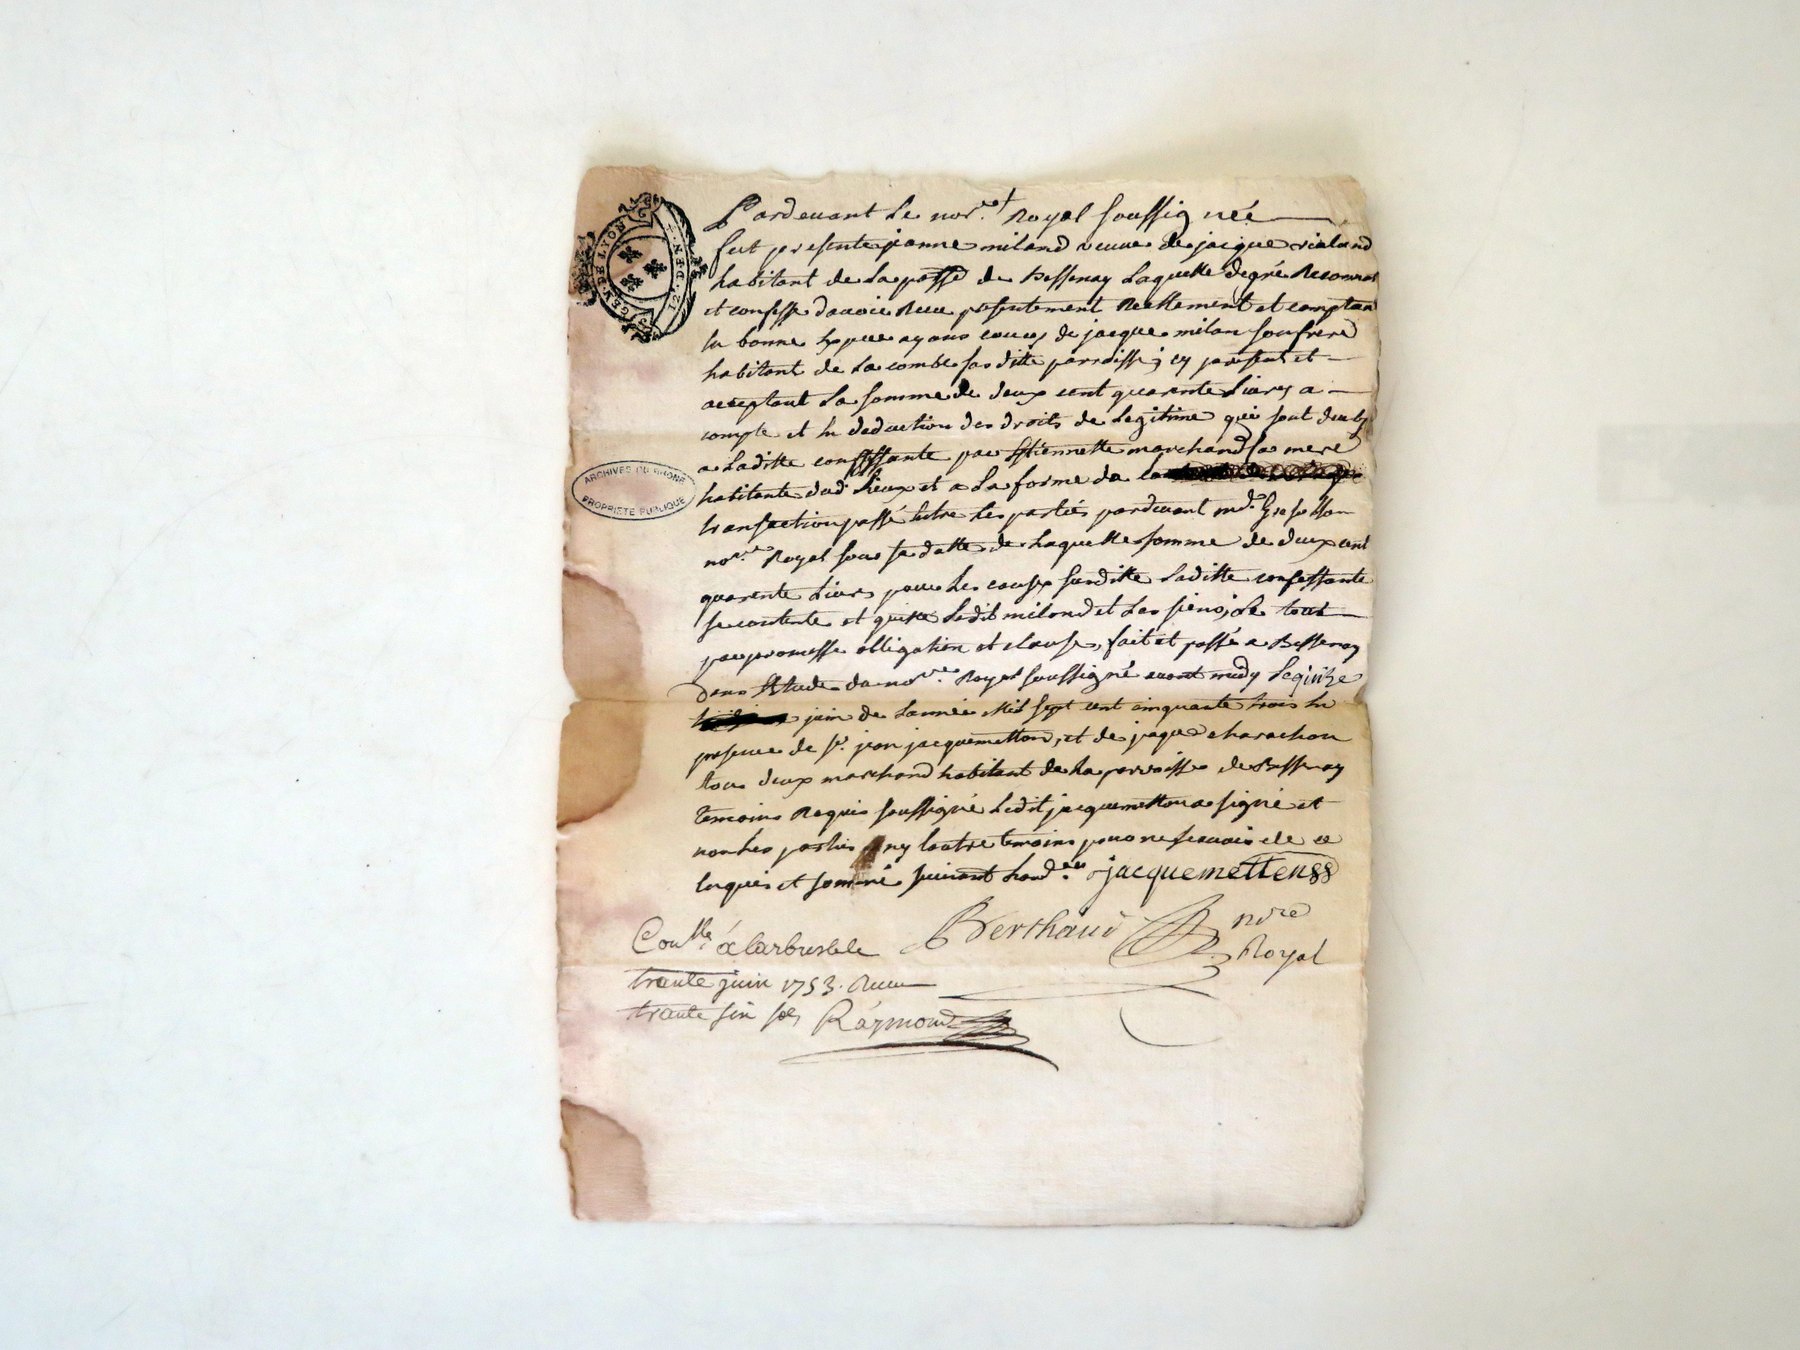 GEN. DE LYON
12. DEN.
Pardevant Le nore. Royal Soussignée
fut presente jeanne miland veuve de jacque rialand
habitant de La posse de Bessenay Laquelle degré Reconnoit
et confesse davoir Reçu presentement Reellement et comptan
en bonne espece ayans cours de jacque milan son frere
habitant de La combe susditte parroisse, cy present et
acceptant La somme de deux cent quarente Livres a
compte et en deduction des droits de Legitime qui sont deub
a Laditte confessante par Estiennette marchand sa mere
habitante dud Lieux et a La forme de la
transaction passé entre Les parties pardevant md.
nore. Royal sous sa datte, de Laquelle somme de deux cent
quarente Livres pour Les causes susditte Laditte confessante
se contente et quitte Ledit miland et Les siens, Le tout
par promesse obligation et clause, fait et passé a Bessenay
dans Estude du nore. Royal soussigné avant midy Le quinze
juin de Lannée Mil sept cent cinquante trois en
presence de sr. jean jacquemetton, et de jaque charachon
tous deux marchand habitant de La parroisse de Bessenay
temoins Requis soussigné Ledit jacquemetton a signé et
non Les parties ny lautre temoins pour ne scavoir de ce
enquis et sommé suivant Lord.ces jacquemetton
Conllé a Larbresle Berthaud nore
trante juin 1753. Recu Royal
trante six sols Raymond
ARCHIVES DU RHONE
PROPRIETE PUBLIQUE